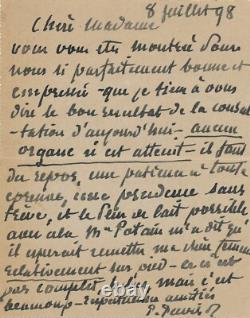 8 juillet 98
Chère Madame
vous vous êtes montrée pour
nous si parfaitement bonne et
empressée que je tiens à vous
dire le bon résultat de la consul
-tation d'aujourd'hui - aucun
organe n'est atteint - il faut
du repos, une patience à toute
épreuve, une prudence sans
trêve, et le plus de lait possible
avec cela Mr Potain m'a dit qu'il
espérait remettre ma chère femme
relativement sur pied - ce n'est
pas complet mais c'est
beaucoup -